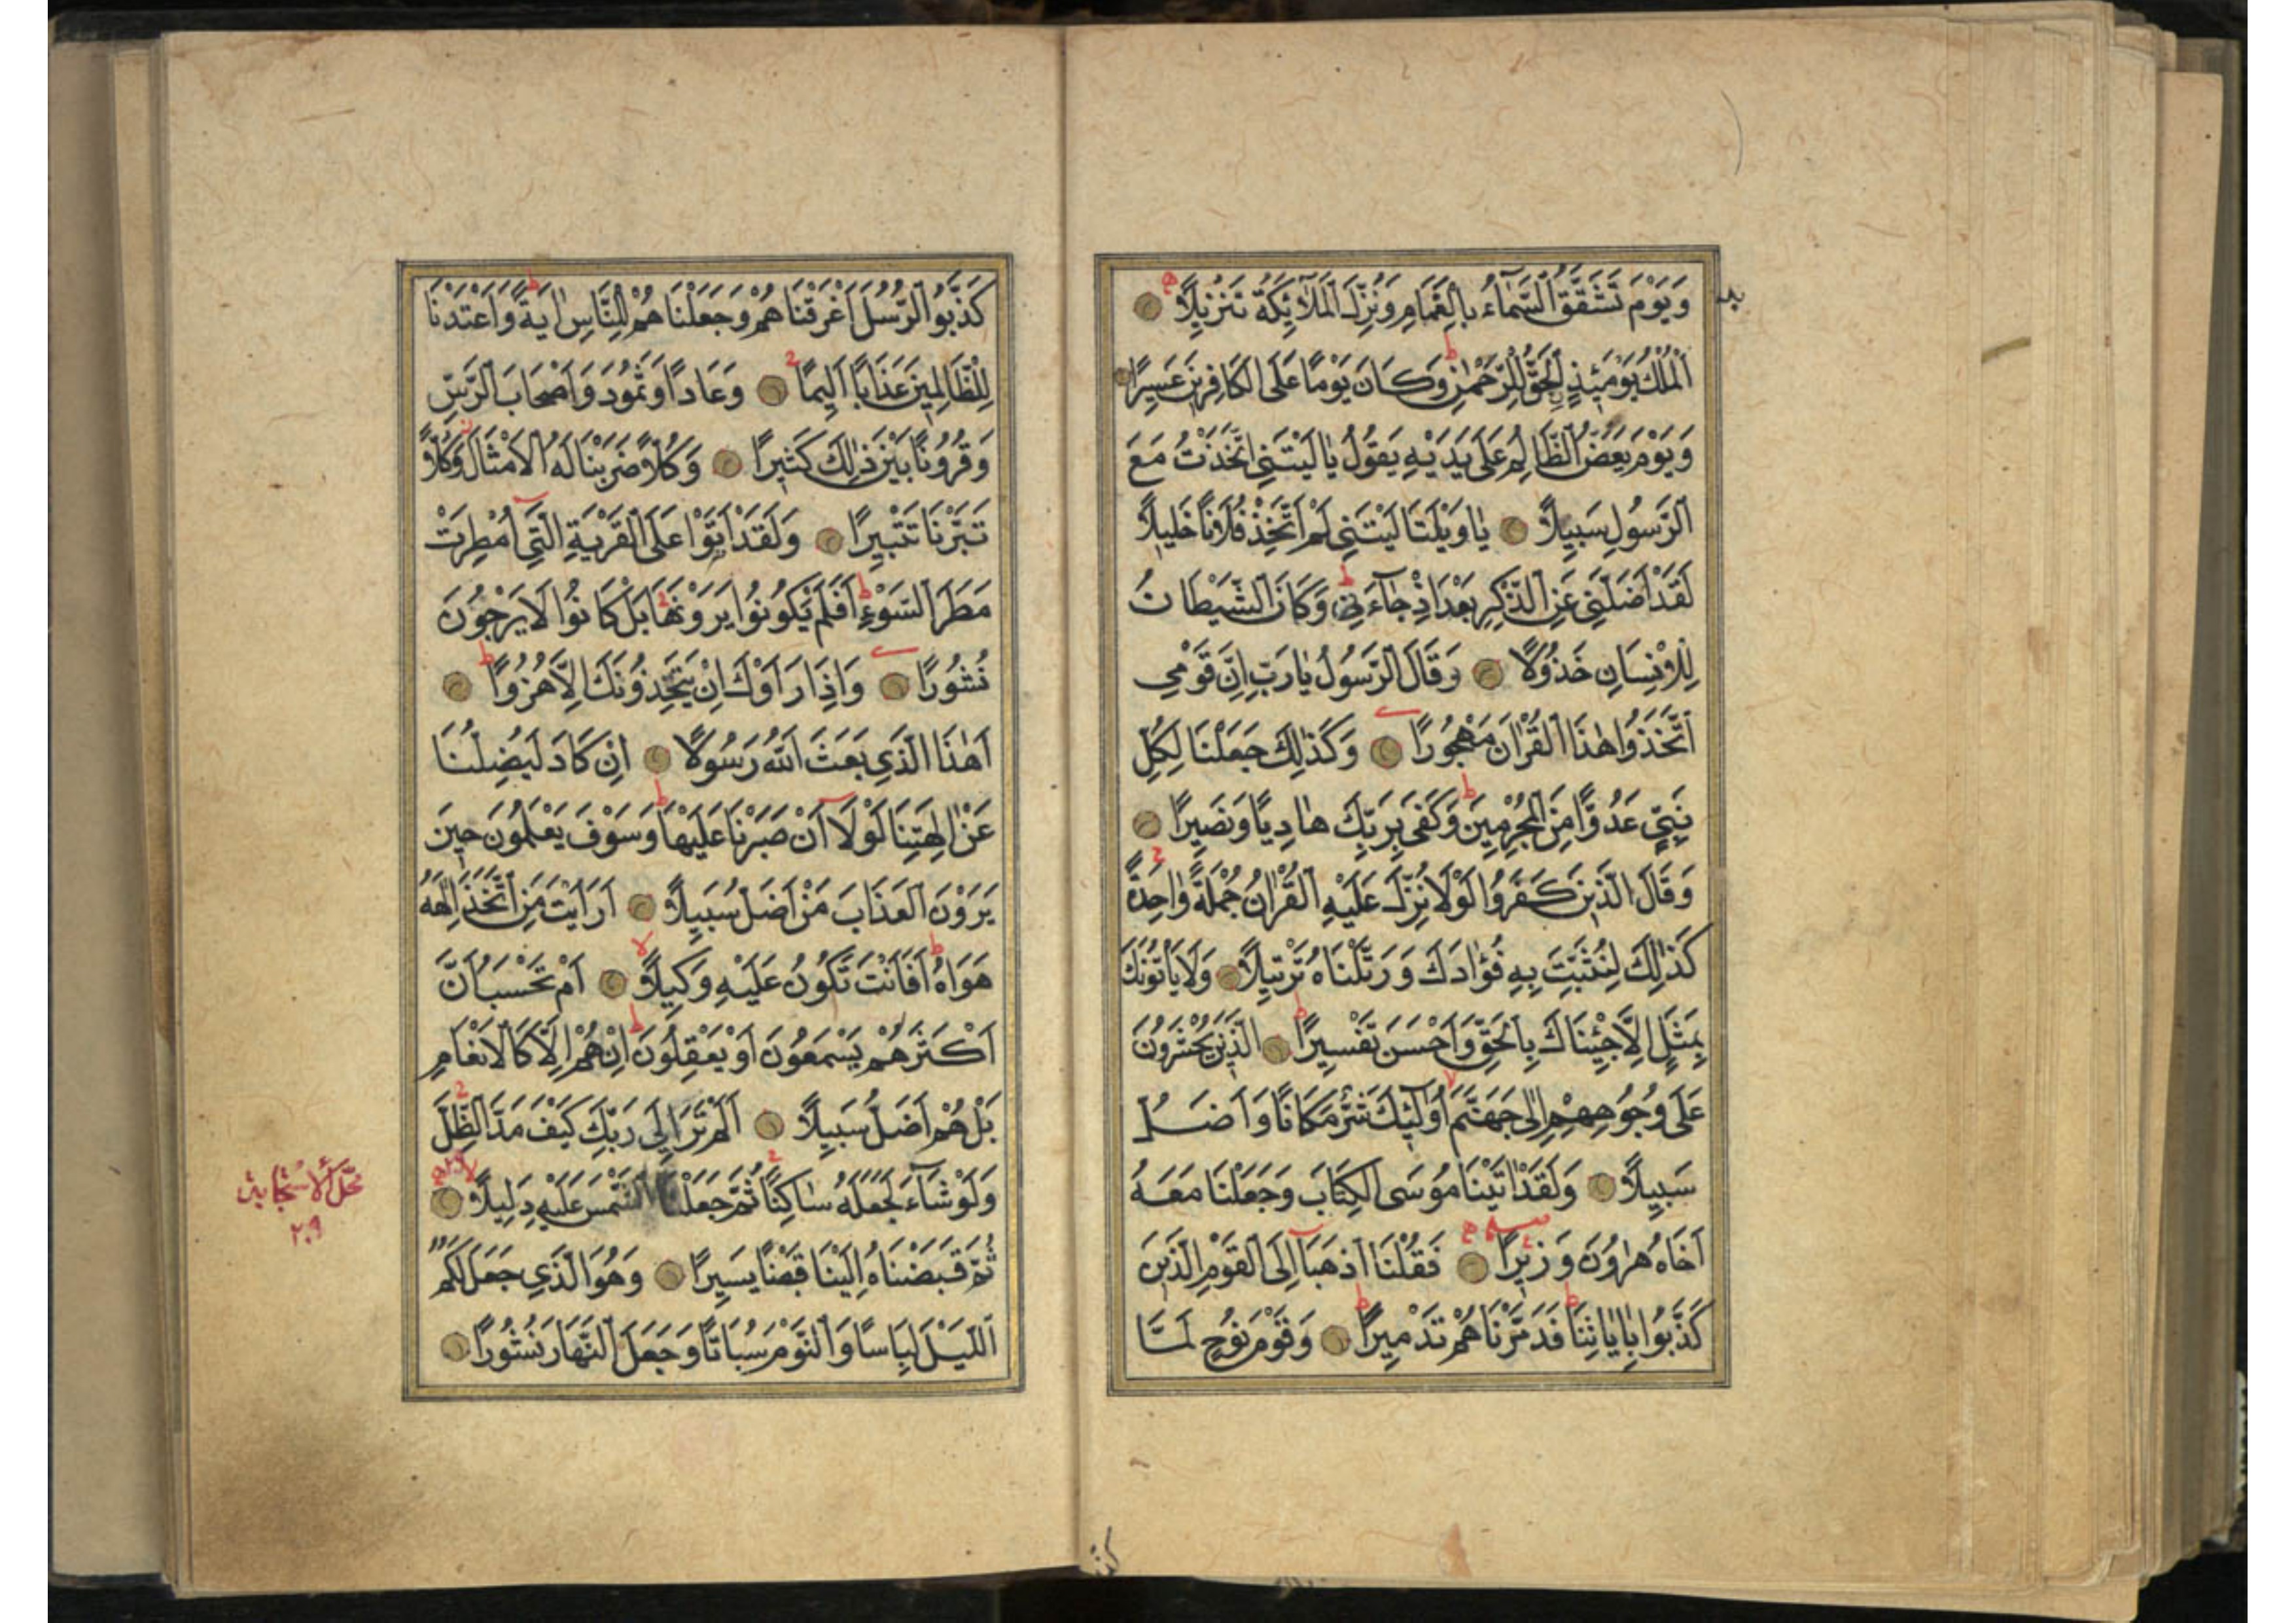 وَيَوْمَ تَشَقَّقُ السَّمَاءُ بِالْغَمَامِ وَنُزِّلَ الْمَلَائِكَةُ تَنْزِيلًا
اَلْمُلْكُ يَوْمَئِذٍ الْحَقُّ لِلرَّحْمٰنِ وَكَانَ يَوْمًا عَلَى الْكَافِرِينَ عَسِيرًا
وَيَوْمَ يَعَضُّ الظَّالِمُ عَلَى يَدَيْهِ يَقُولُ يَا لَيْتَنِي اتَّخَذْتُ مَعَ
الرَّسُولِ سَبِيلًا يَا وَيْلَتَا لَيْتَنِي لَمْ اَتَّخِذْ فُلَانًا خَلِيلًا
لَقَدْ اَضَلَّنِي عَنِ الذِّكْرِ بَعْدَ اِذْ جَآءَنِي وَكَانَ الشَّيْطَانُ
لِلْاِنْسَانِ خَذُولًا وَقَالَ الرَّسُولُ يَا رَبِّ اِنَّ قَوْمِي
اتَّخَذُوا هٰذَا الْقُرْاٰنَ مَهْجُورًا وَكَذٰلِكَ جَعَلْنَا لِكُلِّ
نَبِيٍّ عَدُوًّا مِنَ الْمُجْرِمِينَ وَكَفَى بِرَبِّكَ هَادِيًا وَنَصِيرًا
وَقَالَ الَّذِينَ كَفَرُوا لَوْلَا نُزِّلَ عَلَيْهِ الْقُرْاٰنُ جُمْلَةً وَاحِدَةً
كَذٰلِكَ لِنُثَبِّتَ بِهِ فُؤَادَكَ وَرَتَّلْنَاهُ تَرْتِيلًا وَلَا يَاْتُونَكَ
بِمَثَلٍ اِلَّا جِئْنَاكَ بِالْحَقِّ وَاَحْسَنَ تَفْسِيرًا الَّذِينَ يُحْشَرُونَ
عَلَى وُجُوهِهِمْ اِلٰى جَهَنَّمَ اُولٰئِكَ شَرٌّ مَكَانًا وَاَضَلُّ
سَبِيلًا وَلَقَدْ اٰتَيْنَا مُوسَى الْكِتَابَ وَجَعَلْنَا مَعَهُ
اَخَاهُ هٰرُونَ وَزِيرًا فَقُلْنَا اذْهَبَا اِلَى الْقَوْمِ الَّذِينَ
كَذَّبُوا بِاٰيَاتِنَا فَدَمَّرْنَاهُمْ تَدْمِيرًا وَقَوْمَ نُوحٍ لَمَّا
كَذَّبُوا الرُّسُلَ اَغْرَقْنَاهُمْ وَجَعَلْنَاهُمْ لِلنَّاسِ اٰيَةً وَاَعْتَدْنَا
لِلظَّالِمِينَ عَذَابًا اَلِيمًا وَعَادًا وَثَمُودَ وَاَصْحَابَ الرَّسِّ
وَقُرُونًا بَيْنَ ذٰلِكَ كَثِيرًا وَكُلًّا ضَرَبْنَا لَهُ الْاَمْثَالَ وَكُلًّا
تَبَّرْنَا تَتْبِيرًا وَلَقَدْ اَتَوْا عَلَى الْقَرْيَةِ الَّتِي اُمْطِرَتْ
مَطَرَ السَّوْءِ اَفَلَمْ يَكُونُوا يَرَوْنَهَا بَلْ كَانُوا لَا يَرْجُونَ
نُشُورًا وَاِذَا رَاَوْكَ اِنْ يَتَّخِذُونَكَ اِلَّا هُزُوًا
اَهٰذَا الَّذِي بَعَثَ اللهُ رَسُولًا اِنْ كَادَ لَيُضِلُّنَا
عَنْ اٰلِهَتِنَا لَوْلَا اَنْ صَبَرْنَا عَلَيْهَا وَسَوْفَ يَعْلَمُونَ حِينَ
يَرَوْنَ الْعَذَابَ مَنْ اَضَلُّ سَبِيلًا اَرَاَيْتَ مَنِ اتَّخَذَ اِلٰهَهُ
هَوَاهُ اَفَاَنْتَ تَكُونُ عَلَيْهِ وَكِيلًا اَمْ تَحْسَبُ اَنَّ
اَكْثَرَهُمْ يَسْمَعُونَ اَوْ يَعْقِلُونَ اِنْ هُمْ اِلَّا كَالْاَنْعَامِ
بَلْ هُمْ اَضَلُّ سَبِيلًا اَلَمْ تَرَ اِلَى رَبِّكَ كَيْفَ مَدَّ الظِّلَّ
وَلَوْ شَآءَ لَجَعَلَهُ سَاكِنًا ثُمَّ جَعَلْنَا الشَّمْسَ عَلَيْهِ دَلِيلًا
ثُمَّ قَبَضْنَاهُ اِلَيْنَا قَبْضًا يَسِيرًا وَهُوَ الَّذِي جَعَلَ لَكُمُ
اللَّيْلَ لِبَاسًا وَالنَّوْمَ سُبَاتًا وَجَعَلَ النَّهَارَ نُشُورًا
٢٠٩